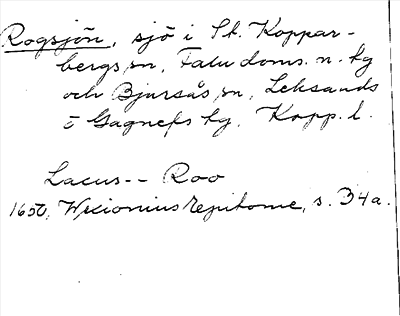 Rogsjön, sjö i St. Koppar-
bergs sn, Falu doms. n. hg
och Bjursås sn, Leksands
o Gagnefs hg, Kopp. l.
Lacus -- Roo
1650, Wexionius epitome, s. 34a.